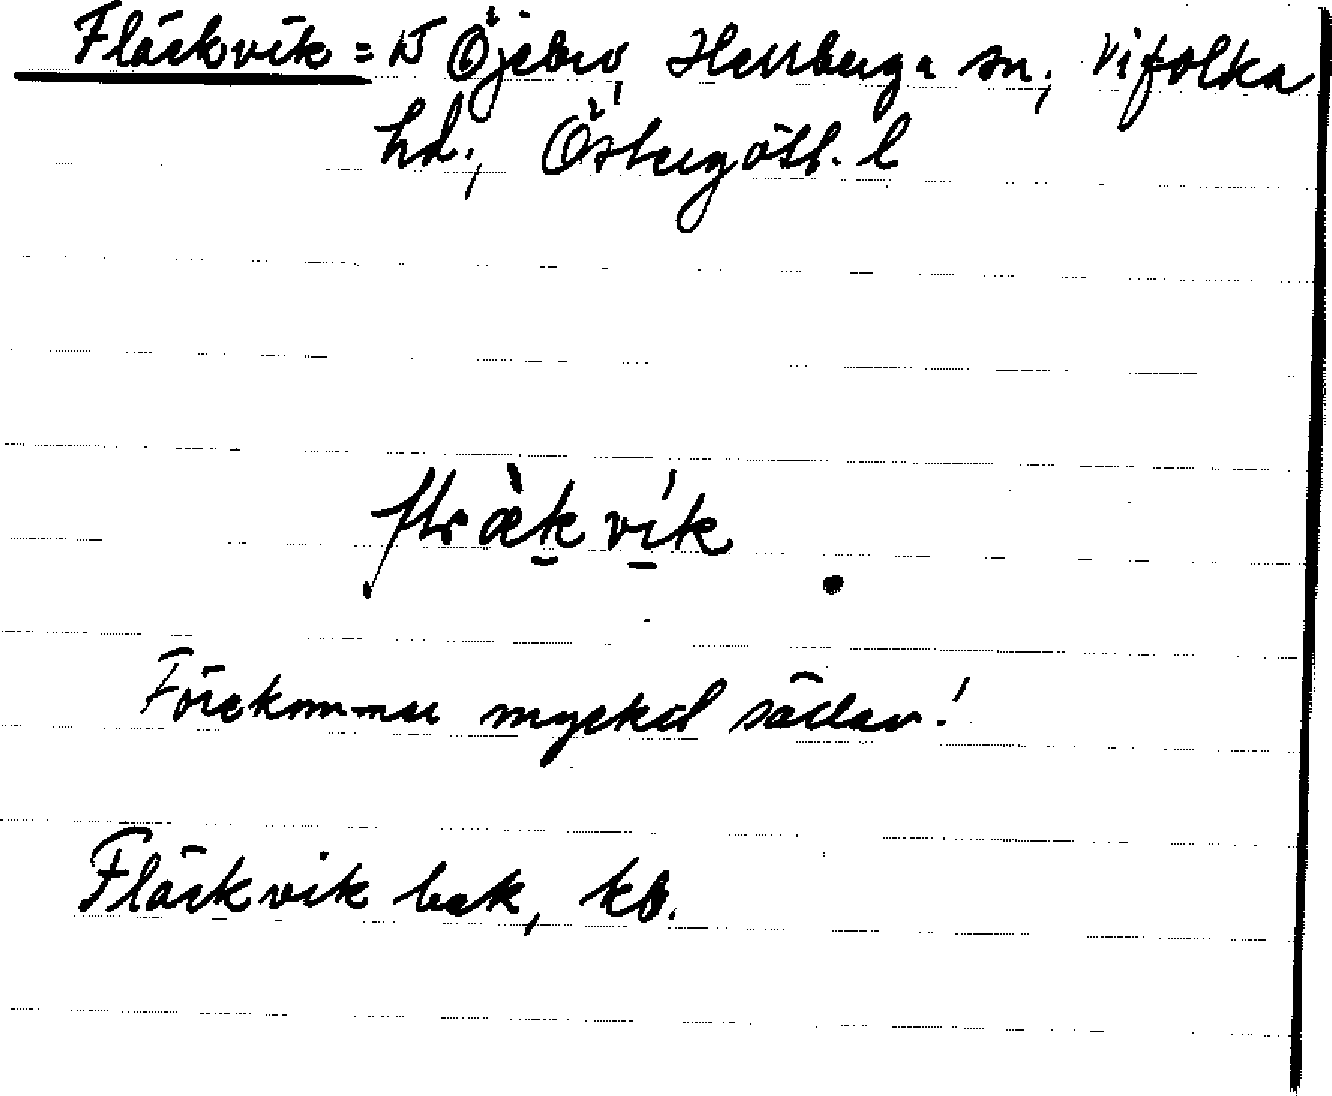 Fläckvik = N Öjebro, Herrberga sn, Vifolka
hd., Östergötl. l
Förekommer mycket sällan!
Fläckvik bek, kb.